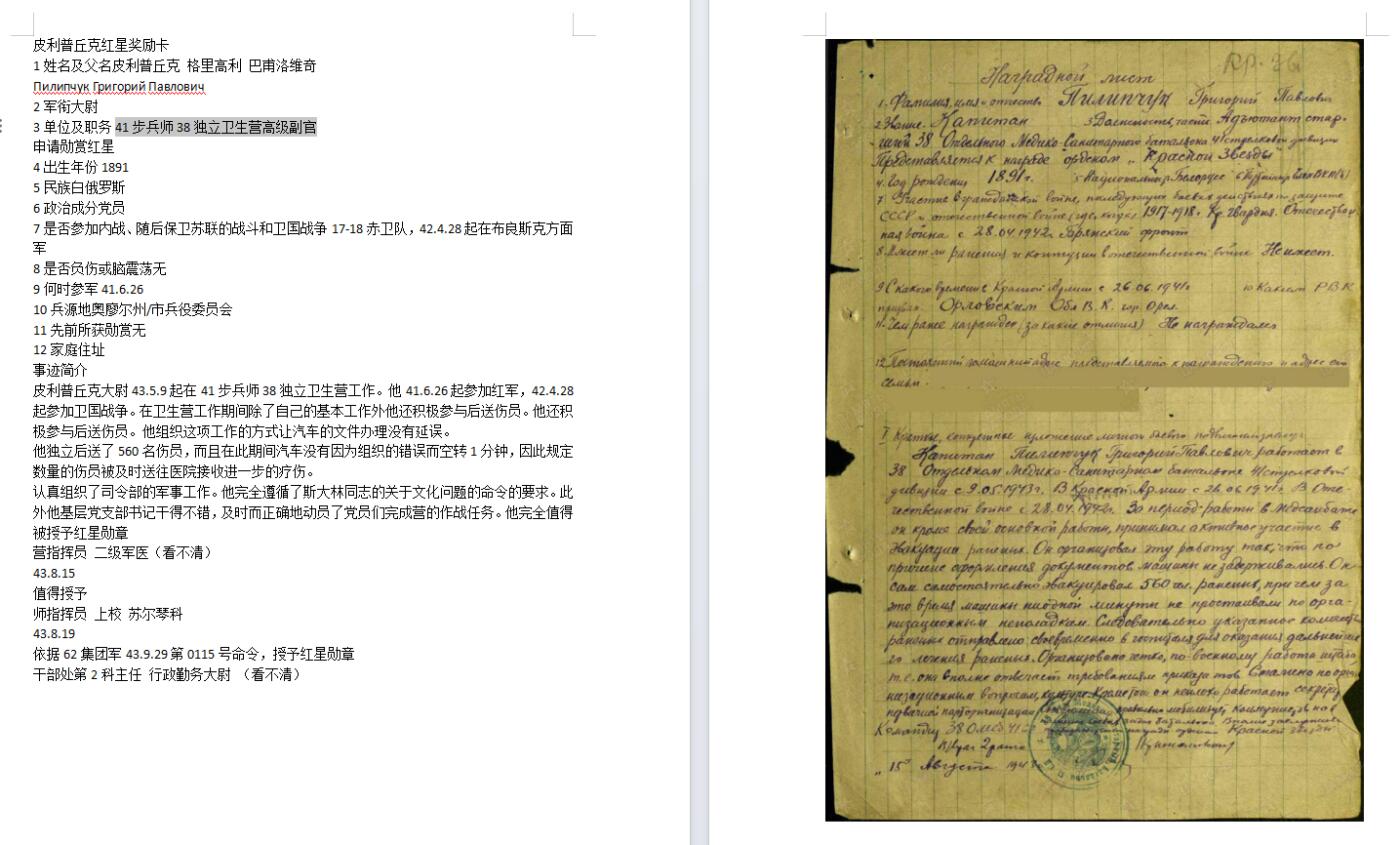 皮利普丘克红星奖励卡
1 姓名及父名皮利普丘克 格里高利 巴甫洛维奇
Пилипчук Григорий Павлович
2 军衔大尉
3 单位及职务 41 步兵师 38 独立卫生营高级副官
申请勋赏红星
4 出生年份 1891
5 民族白俄罗斯
6 政治成分党员
7 是否参加内战、随后保卫苏联的战斗和卫国战争 17-18 赤卫队，42.4.28 起在布良斯克方面
军
8 是否负伤或脑震荡无
9 何时参军 41.6.26
10 兵源地奥廖尔州/市兵役委员会
11 先前所获勋赏无
12 家庭住址
事迹简介
皮利普丘克大尉 43.5.9 起在 41 步兵师 38 独立卫生营工作。他 41.6.26 起参加红军，42.4.28
起参加卫国战争。在卫生营工作期间除了自己的基本工作外他还积极参与后送伤员。他还积
极参与后送伤员。他组织这项工作的方式让汽车的文件办理没有延误。
他独立后送了 560 名伤员，而且在此期间汽车没有因为组织的错误而空转 1 分钟，因此规定
数量的伤员被及时送往医院接收进一步的疗伤。
认真组织了司令部的军事工作。他完全遵循了斯大林同志的关于文化问题的命令的要求。此
外他基层党支部书记干得不错，及时而正确地动员了党员们完成营的作战任务。他完全值得
被授予红星勋章
营指挥员 二级军医（看不清）
43.8.15
值得授予
师指挥员 上校 苏尔琴科
43.8.19
依据 62 集团军 43.9.29 第 0115 号命令，授予红星勋章
干部处第 2 科主任 行政勤务大尉 （看不清）
Наградной лист
1. Фамилия, имя и отчество Пилипчук Григорий Павлович
2. Звание. Капитан 3 Должность, часть Адъютант стар-
ший 38 Отдельного Медико-Санитарного баталиона 41 стрелковой дивизии
Представляется к награде орденом „Красной Звезды"
4. Год рождения 1891 г. 5 Национальность Белорус
7. Участие в гражданской войне, последующих боевых действиях по защите
СССР и отечественной войне (где, когда) 1917-1918 г. Кр. гвардия. Отечествен
ная война с 28.04.1942 г. Брянский фронт
8. Имеет ли ранения и контузии в отечественной войне Не имеет.
9 С какого времени в Красной Армии с 26.06.1941 г 10 Каким РВК
призван. Орловским Обл В. К. гор. Орел.
11. Чем ранее награжден (за какие отличия) Не награждался
12. Постоянный домашний адрес представляемого к награждению и адрес его
семьи.
I Краткое, конкретное изложение личного боевого подвига
Капитан Пилипчук Григорий Павлович работает в
38 Отдельном Медико-Санитарном баталионе 41 стрелковой
дивизии с 9.05.1943 г. В Красной Армии с 26.06.1941 г. В Оте-
чественной войне с 28.04.1942 г. За период работы в Медсанбате
он кроме своей основной работы, принимал активное участие в
Эвакуации раненых. Он организовал эту работу так, что по
причине оформления документов машины не задерживались. Он
сам самостоятельно эвакуировал 560 чел. раненых, причем за
это время машины ни одной минуты не простаивали по орга-
низационным неполадкам. Следовательно указанное количество
раненых отправлено своевременно в госпиталя для оказания дальнейше
го лечения раненых. Организовано четко, по-военному работа штаба
т.е. она вполне отвечает требованиям приказа тов. Сталина по орга
низационным вопросам, он неплохо работает секретарем
первичной парторганизации мобилизует коммунистов на
Красной звезды
Командир 38 ОМСБ 41
Врач 2 ранга
„15" Августа 194